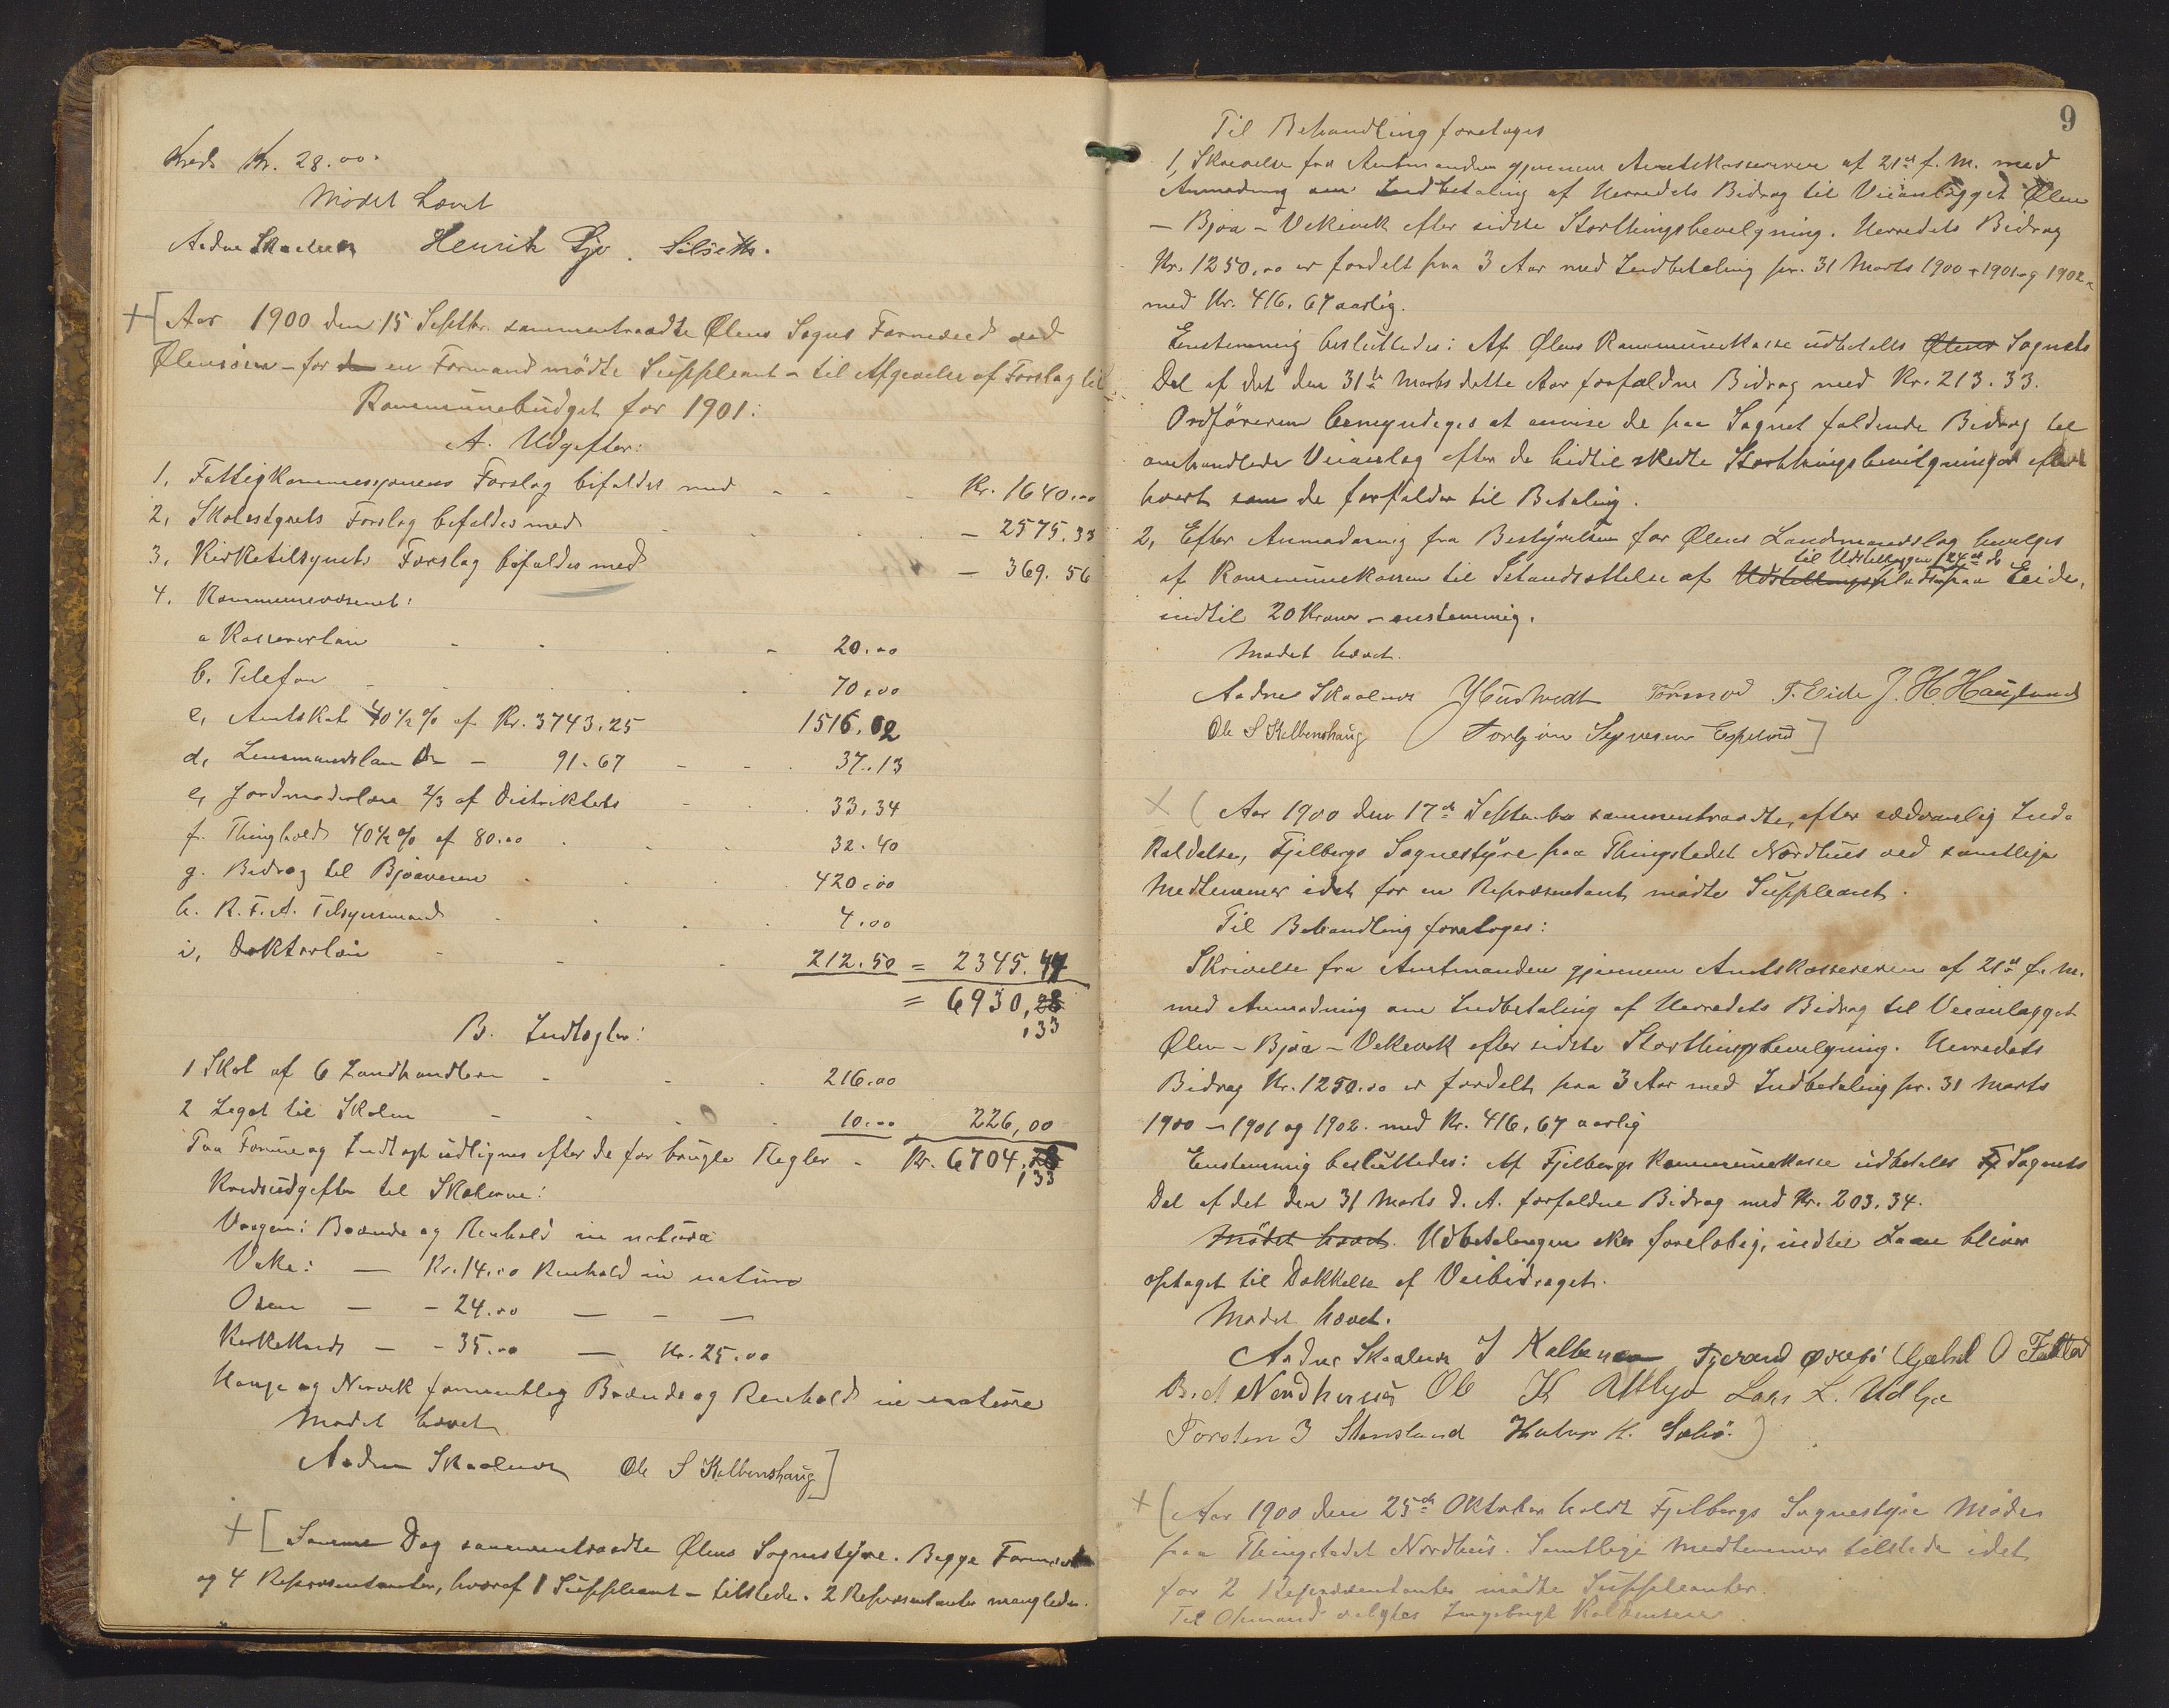 Kreds Kr. 28.00.
Mødet hævet
Aadne Skaalnes Henrik Silseth.
+ [ Aar 1900 den 15 Septbr. sammentraadte Ølens Sogns Formænd ved
Ølensøen – for en Formand mødte Suppleant – til Afgivelse af Forslag til
Kommunebudget for 1901:
A. Udgifter:
1, Fattigkommissionens Forslag bifaldes med - - - Kr. 1640.00
2, Skolestyrets Forslag bifaldes med - - - - 2575.33
3, Kirketilsynets Forslag bifaldes med - 369.56
4. Kommunevæsenet:
a Kassererløn - - - 20.00
b. Telefon - - - 70.00
c, Amtskat 40½ % af Kr. 3743.25 1516.02
d, Lensmandsløn Do – 91.67 - - - 37.13
e, Jordmoderløn 2/3 af Distriktets - - 33.34
f. Thinghold 40½ % af 80.00 - - - 32.40
g. Bidrag til Bjoaveien - - - 420.00
h. R.F.A. Tilsynsmand - - - 4.00
i, Doktorløn - - - 212.50 = 2345.44
= 6930,28
,33
B. Indtægter:
1 Skat af 6 Landhandlere - - - 216.00
2 Legat til Skolen - - - 10.00 226,00
Paa Formue og Indtægt udlignes efter de før brugte Regler - Kr. 6704,28
,33
Kredsudgifter til Skolerne:
Vaagen: Brænde og Renhold in natura
Vake: — Kr. 14.00 Renhold in natura
Osen — - 24.00 — — —
Kirkekreds — - 35.00 — Kr. 25.00
Hauge og Nervik Brænde og Renhold in natura
Mødet hævet
Aadne Skaalnes Ole S Kalbenshaug ]
+ [ Samme Dag sammentraadte Ølens Sognestyre. Begge Formænd
og 4 Repræsentanter, hvoraf 1 Suppleant – tilstede. 2 Repræsentanter manglede.
9
Til Behandling foretoges
1, Skrivelse fra Amtmanden gjennem Amtskassereren af 21de f. M. med
Anmodning om Indbetaling af Herredets Bidrag til Veianlægget Ølen
– Bjoa – Vikevik efter sidste Storthingsbevilgning. Herredets Bidrag
Kr. 1250.00 er fordelt paa 3 Aar med Indbetaling pr. 31 Marts 1900 – 1901 og 1902
med Kr. 416.67 aarlig.
Enstemmig besluttedes: Af Ølens Kommunekasse udbetales Ølens Sognets
Del af det den 31te Marts dette Aar forfaldne Bidrag med Kr. 213.33.
Ordføreren bemyndiges at anvise de paa Sognet faldende Bidrag til
omhandlede Veianlæg efter de hidtil skedte Storthingsbevilgninger efter
hvert som de forfalder til Betaling.
2, Efter Anmodning fra Bestyrelsen for Ølens Landmandslag bevilges
til Udstillingen 24de ds
af Kommunekassen til Istandsættelse af Udstillingspladsen paa Eide,
indtil 20 Kroner – enstemmig.
Mødet hævet.
Aadne Skaalnes Tormod T. Eide J. H. Haugland
Ole S Kalbenshaug Torbjørn Espeland ]
+ ( Aar 1900 den 17de September sammentraadte, efter sædvanlig Ind-
kaldelse, Fjelbergs Sognestyre paa Thingstedet Nordhus ved samtlige
Medlemmer idet for en Repræsentant mødte Suppleant.
Til Behandling foretoges:
Skrivelse fra Amtmanden gjennem Amtskassereren af 21de f. M.
med Anmodning om Indbetaling af Herredets Bidrag til Veianlægget
Ølen – Bjoa – Vikevik efter sidste Storthingsbevilgning. Herredets
Bidrag Kr. 1250.00 er fordelt paa 3 Aar med Indbetaling pr. 31 Marts
1900 – 1901 og 1902. med Kr. 416.67 aarlig
Enstemmig besluttedes: Af Fjelbergs Kommunekasse udbetales Fj Sognets
Del af det den 31 Marts d. A. forfaldne Bidrag med Kr. 203.34.
Mødet hævet. Udbetalingen sker foreløbig, indtil Laan bliver
optaget til Dækkelse af Veibidraget.
Mødet hævet.
Aadne Skaalnes J Kalbensen Tjerand Øvrebø O
Nordhuus Ole K Lars L.
Torsten Stensland Halvor H. Sæbø. )
+ ( Aar 1900 den 25de Oktober holdt Fjelbergs Sognestyre Møde
paa Thingstedet Nordhuus. Samtlige Medlemmer tilstede idet
for 2 Repræsentanter mødte Suppleanter.
Til Ingebrigt